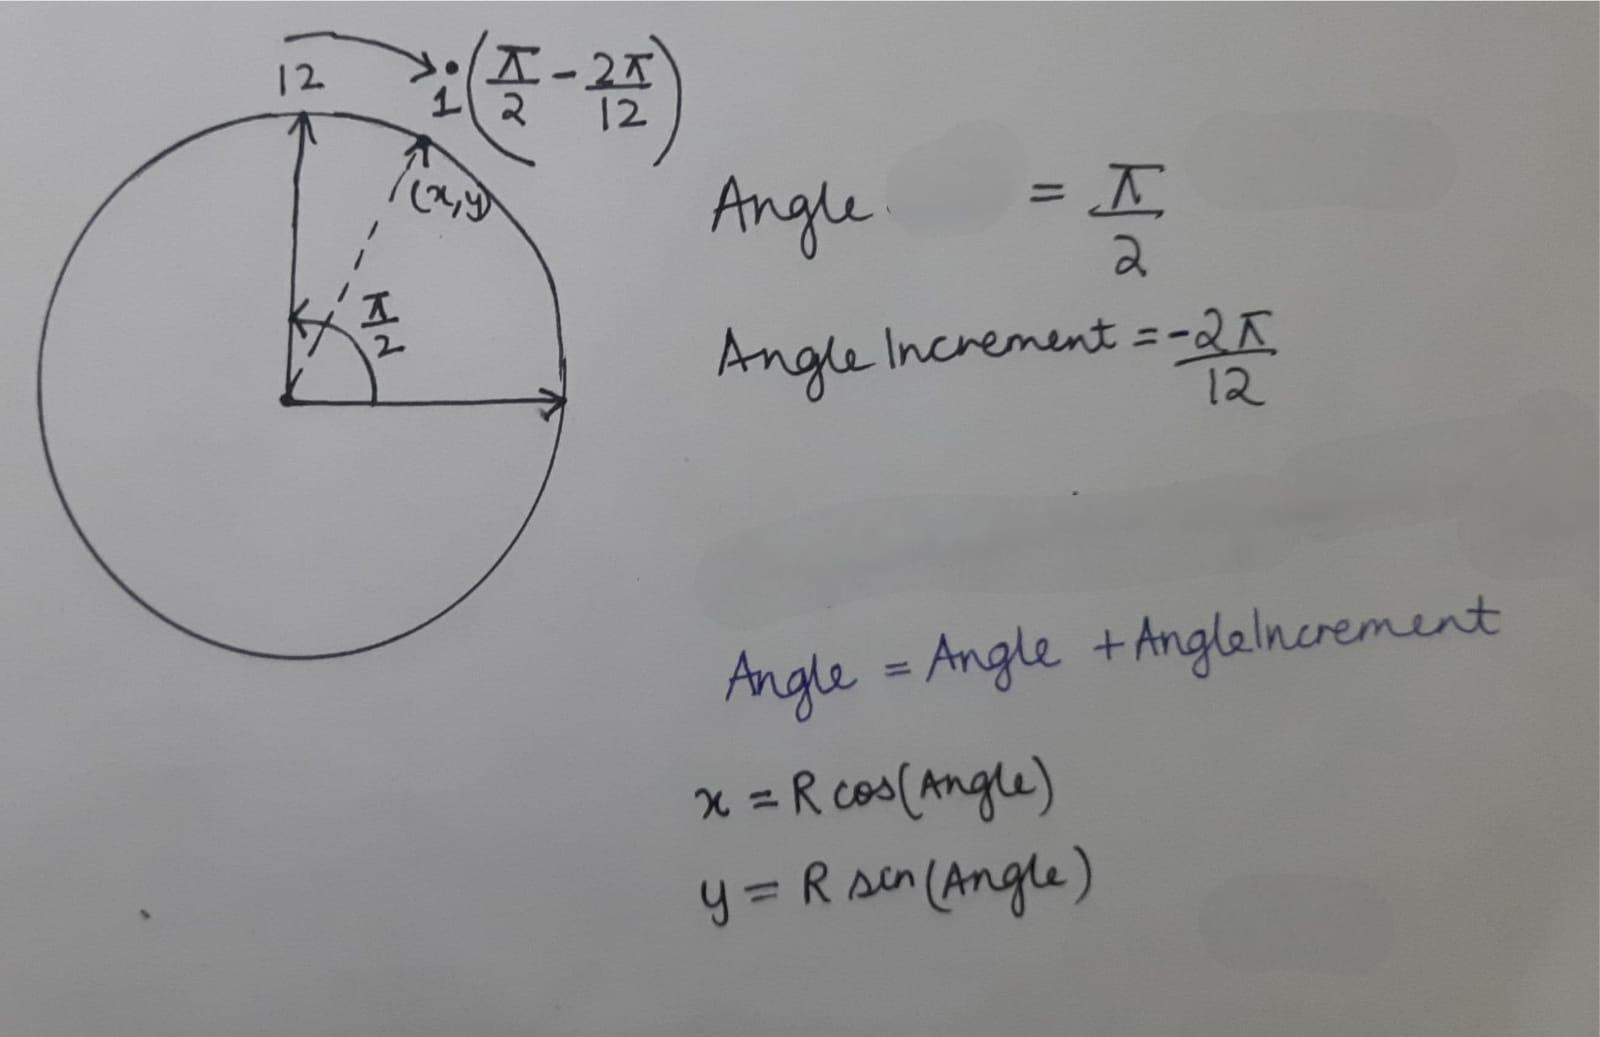 12
1 (π/2 - 2π/12)
(x,y)
π/2
Angle = π/2
Angle Increment = -2π/12
Angle = Angle + AngleIncrement
x = R cos(Angle)
y = R sin(Angle)